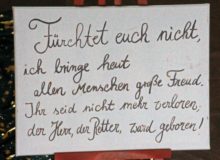 Fürchtet euch nicht,
ich bringe heut
allen Menschen große Freud.
Ihr seid nicht mehr verloren,
der Herr, der Retter, ward geboren!